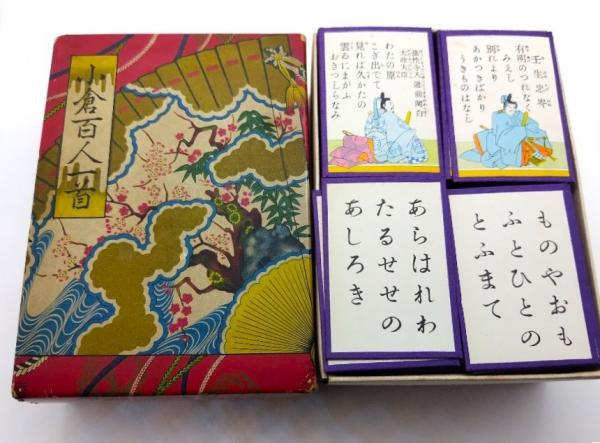 小倉百人一首
法性寺入道前関白
太政大臣
わたの原
こぎ出でて
見れば久かたの
雲ゐにまがふ
おきつしらなみ
壬生忠岑
有明のつれなく
みえし
別れより
あかつきばかり
うきものはなし
あらはれわ
たるせせの
あしろき
ものやおも
ふとひとの
とふまて